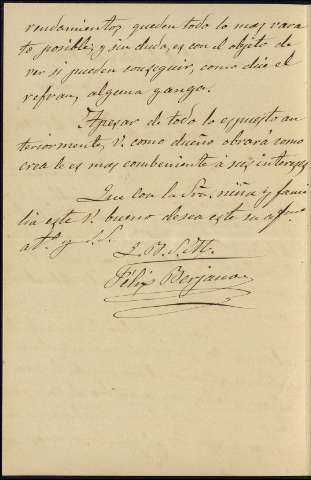 rendamientos, queden todo lo mas vara
to posible, y sin duda, es con el objeto de
ver si pueden conseguir, como dice el
refran, alguna ganga.
Apesar de todo lo espuesto an
teriormente, V. como dueño obrará como
crea le es mas combeniente á sus intereses
Que con la Sra, niña y fami
lia este V. bueno desea este su afmo
a.to y S.S.
Q.B.S.M.
Félix Berjano